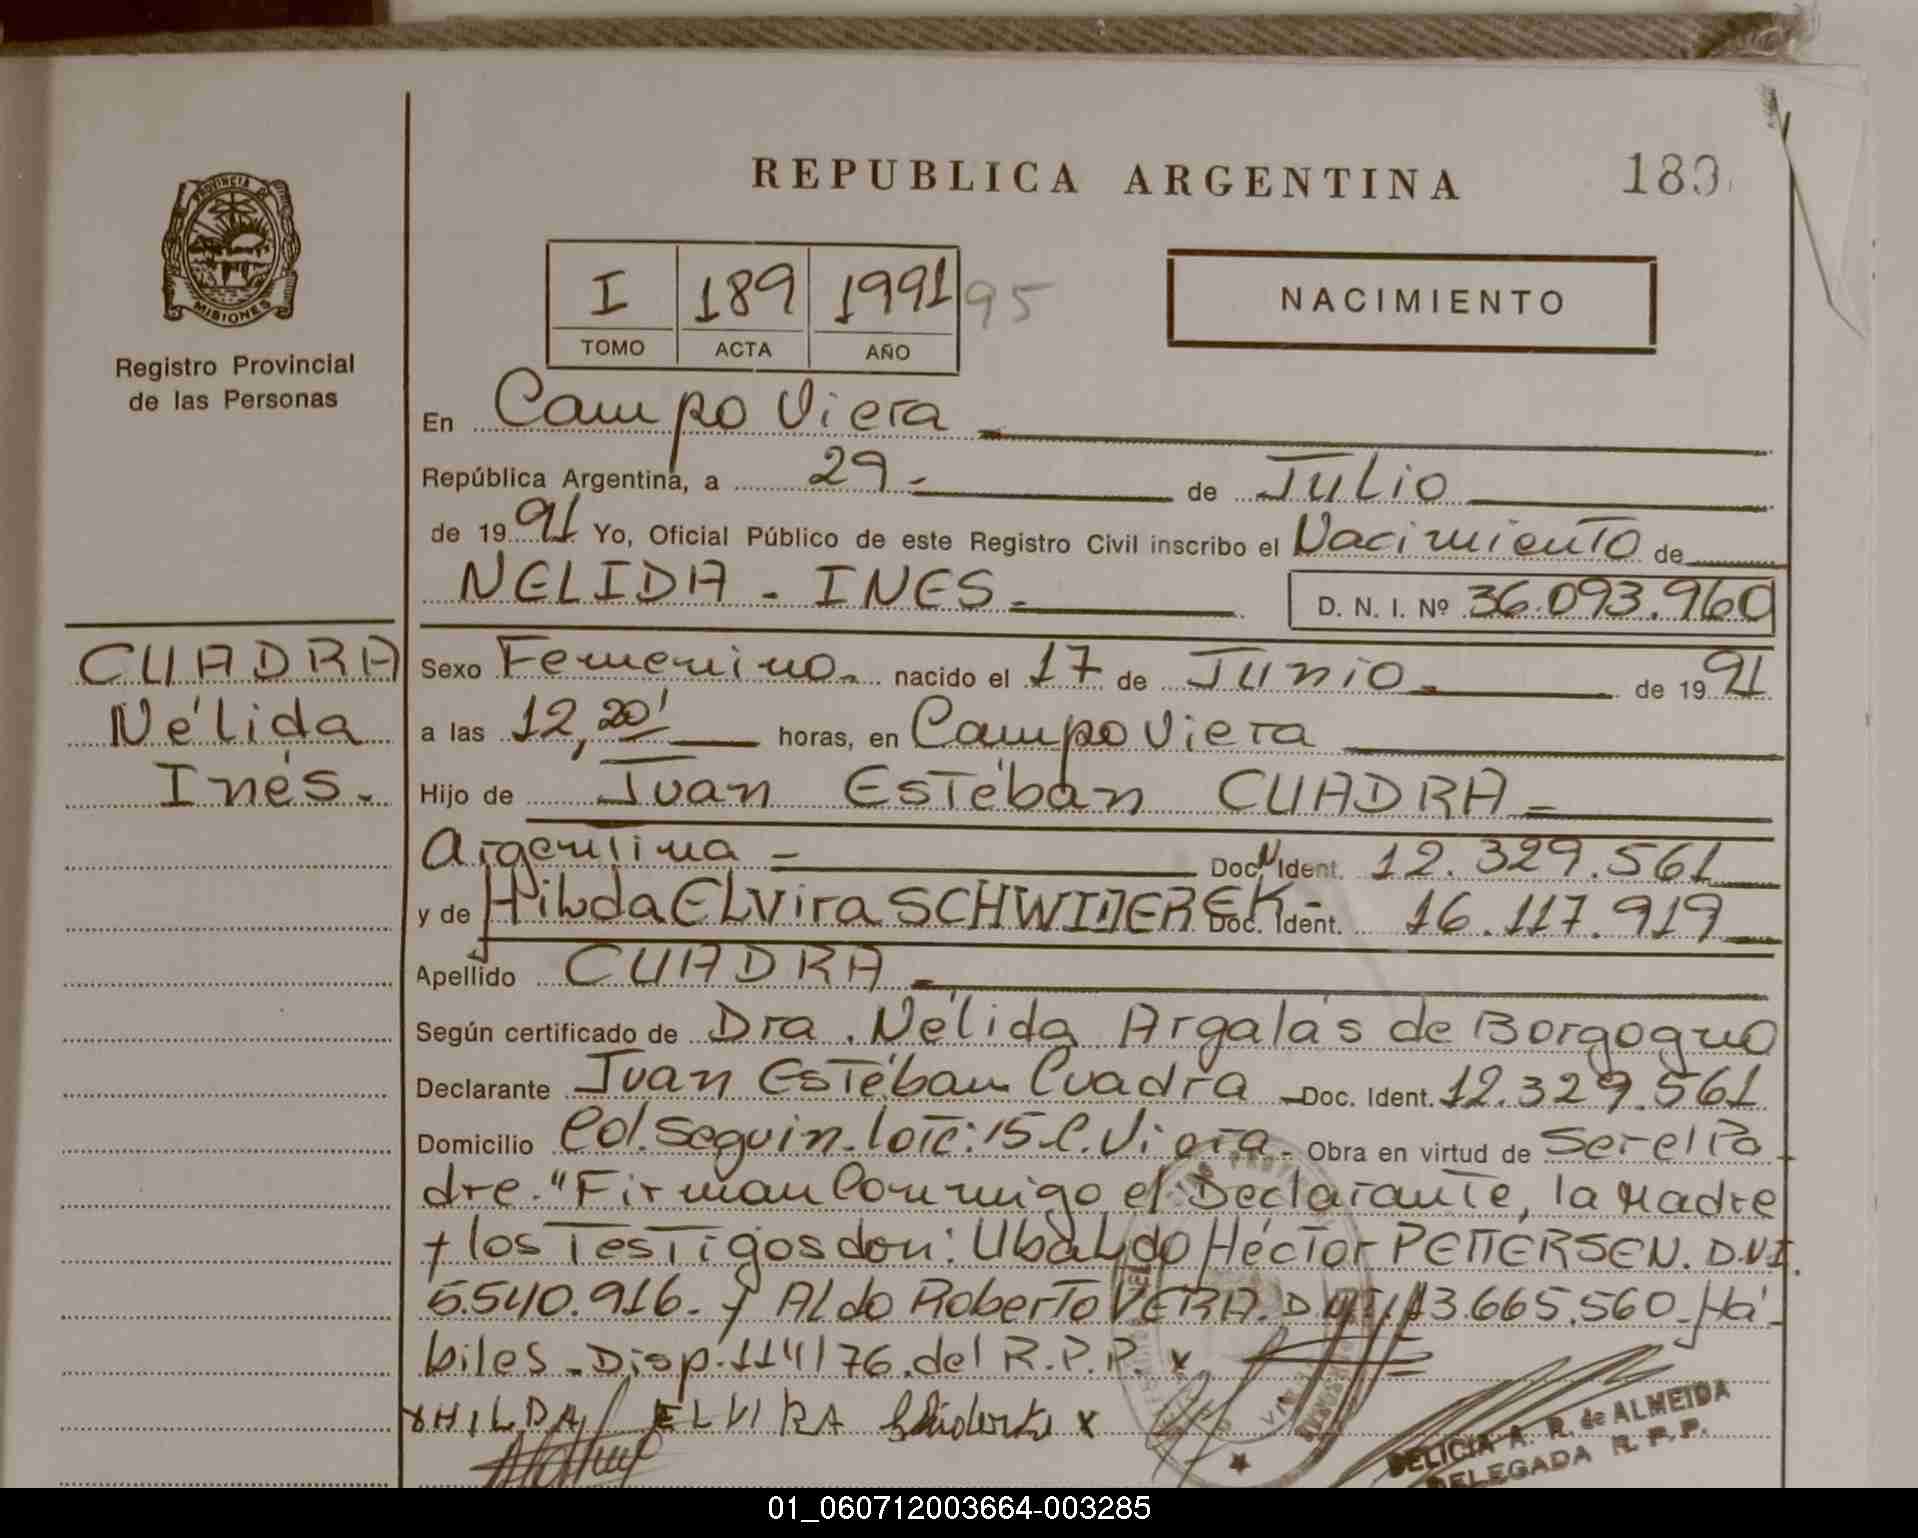 REPUBLICA ARGENTINA
189
PROVINCIA DE
MISIONES
Registro Provincial
de las Personas
I 189 1991 95
TOMO ACTA AÑO
NACIMIENTO
En Campo Viera
República Argentina, a 29 - de Julio
de 1991 Yo, Oficial Público de este Registro Civil inscribo el Nacimiento de
NELIDA - INES - D. N. I. Nº 36.093.960
CUADRA
Nélida
Inés.
Sexo Femenino. nacido el 17 de Junio - de 1991
a las 12,20' horas, en Campo Viera
Hijo de Juan Estéban CUADRA -
Argentina - Doc. Ident. 12.329.561
y de Hilda Elvira SCHWIDEREK - Doc. Ident. 16.117.919
Apellido CUADRA -
Según certificado de Dra. Nélida Argalás de Borgogno
Declarante Juan Estéban Cuadra - Doc. Ident. 12.329.561
Domicilio Col. Seguin. lote: 15 C. Viera - Obra en virtud de Ser el Pa
dre. "Firman Conmigo el Declarante, la Madre
y los Testigos don: Ubaldo Héctor PETTERSEN. D.N.I.
5.540.916. y Aldo Roberto VERA. D.N.I. 13.665.560. Há-
biles - Disp. 114/76. del R.P.P. x
x HILDA ELVIRA x
DELICIA A. R. de ALMEIDA
DELEGADA R. P. P.
01_060712003664-003285